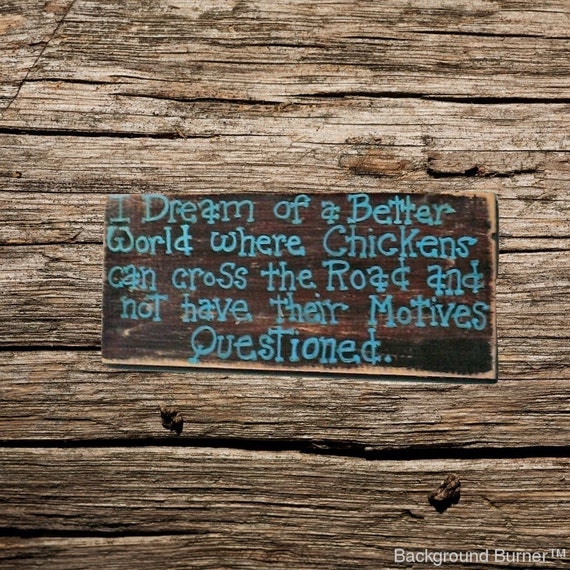 I Dream of a Better
World where Chickens
can cross the Road and
not have their Motives
Questioned.
Background Burner™